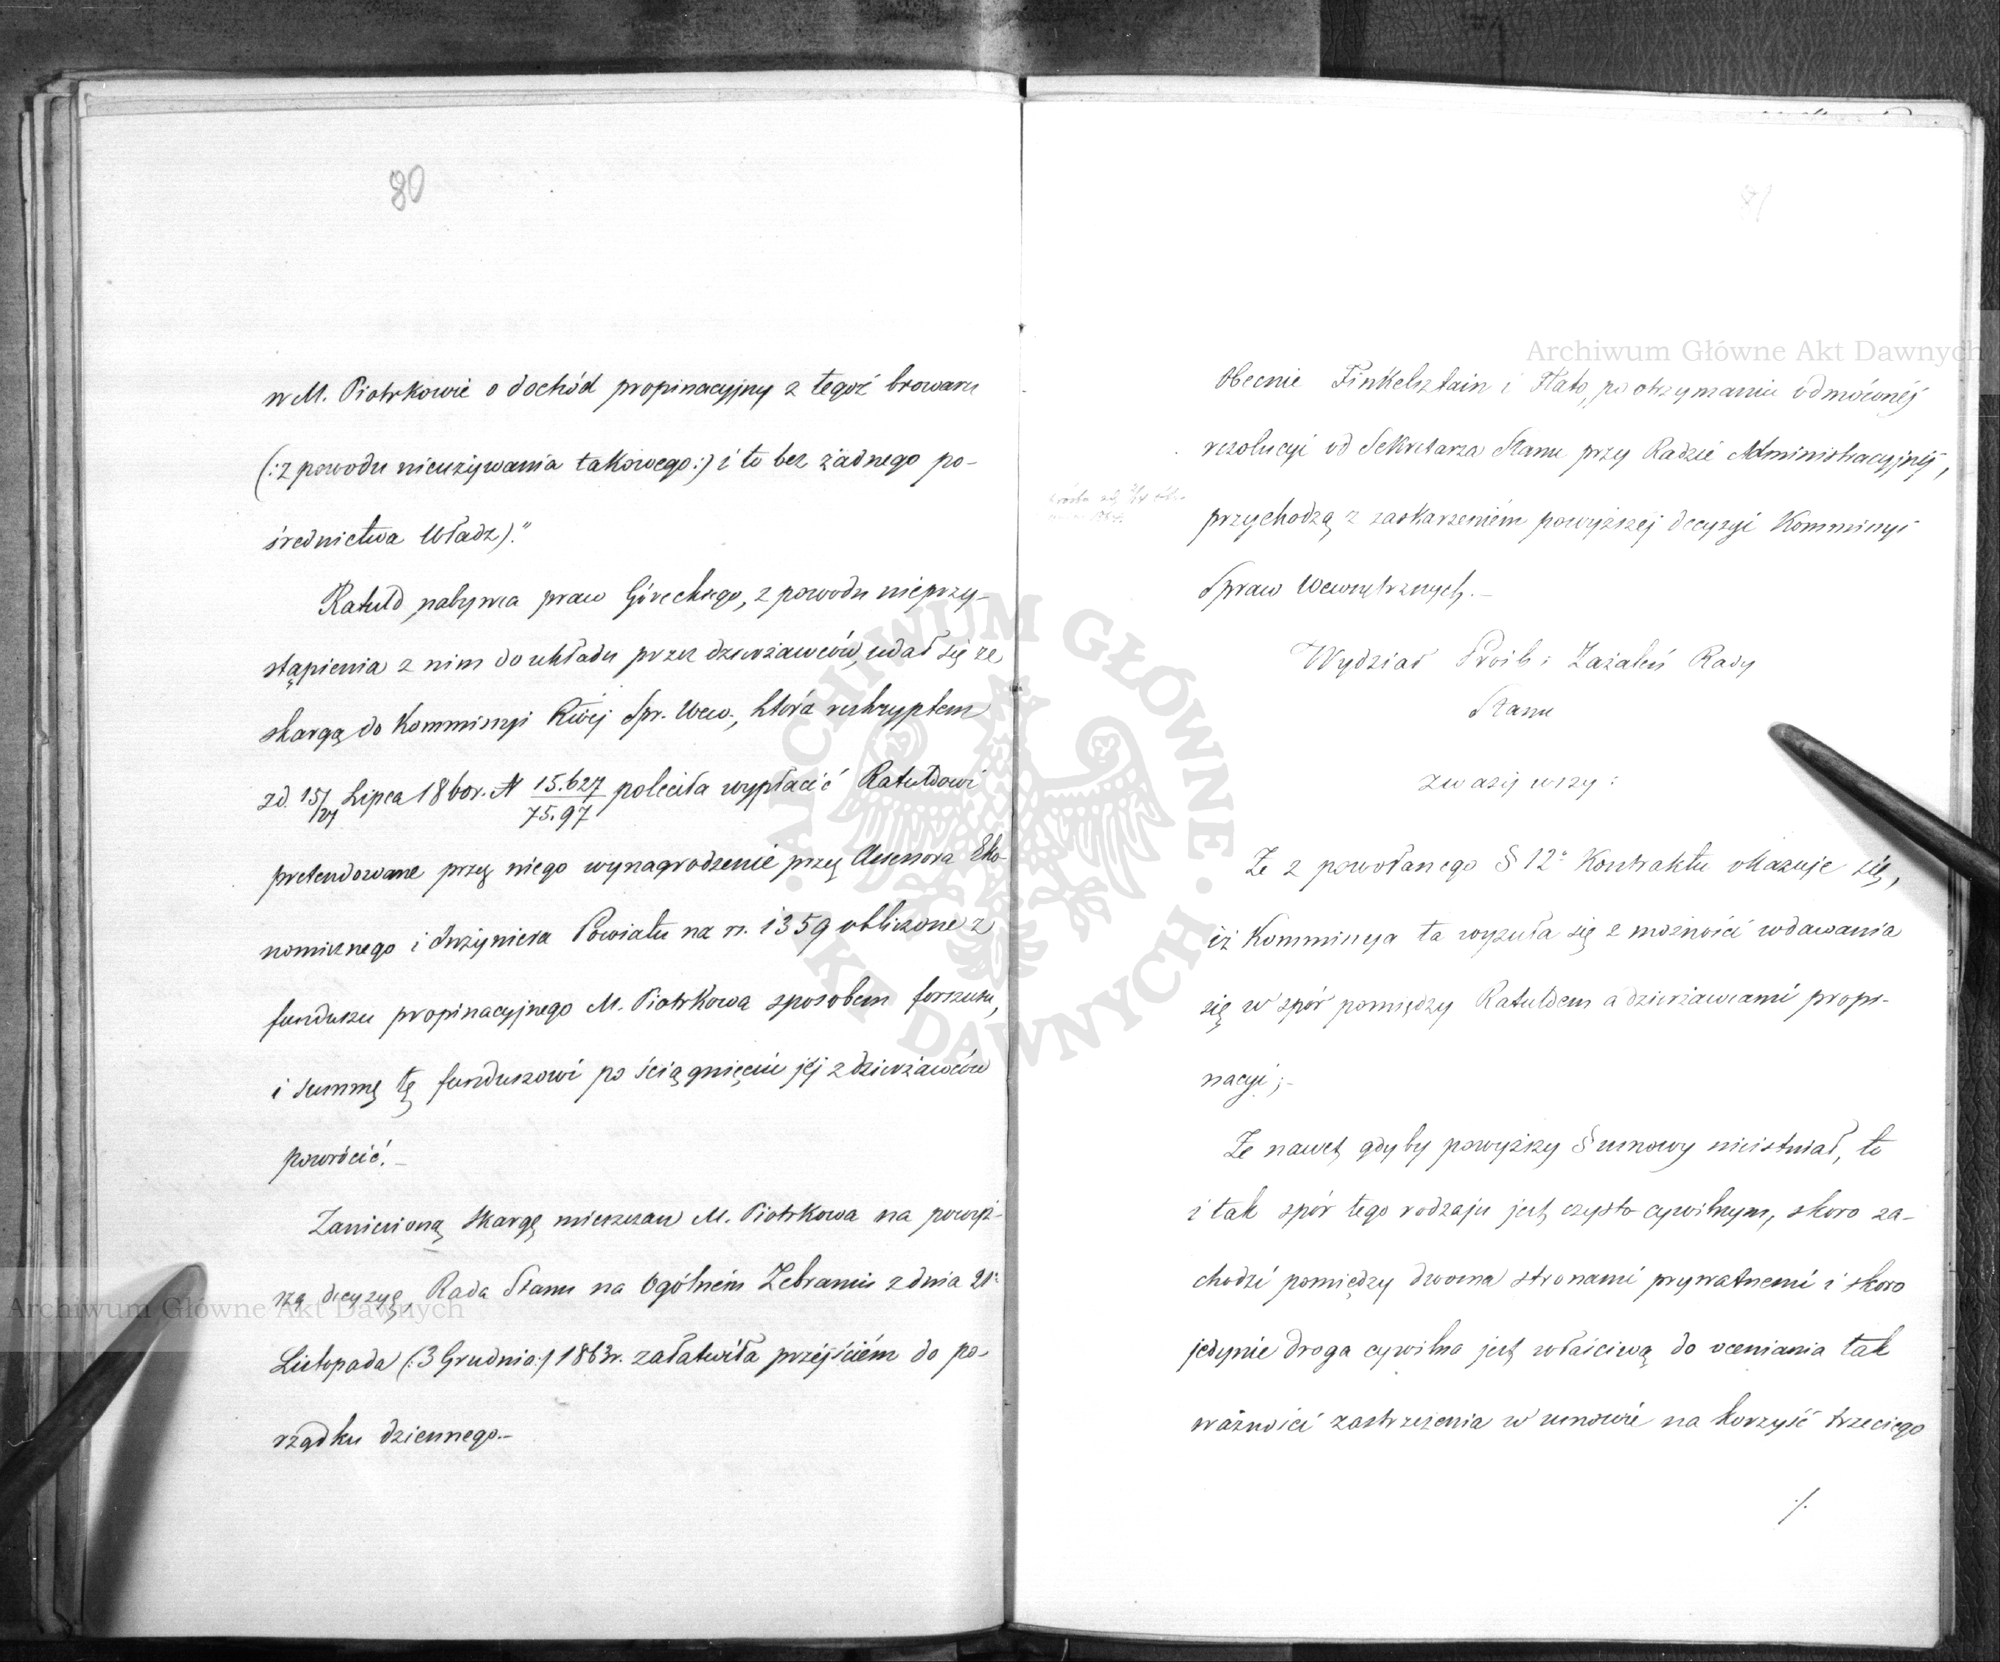 80
w M. Piotrkowie o dochód propinacyjny z tegoż browaru
(:z powodu nieużywania takowego:) i to bez żadnego po-
średnictwa Władz)."
Ratuld nabywca praw Góreckiego, z powodu nieprzy-
stąpienia z nim do układu przez dzierżawców, udał się ze
skargą do Kommissyi Rząj Spr. Wew., która reskryptem
z d. 15/27 Lipca 1860r. N 15.627/75.97 poleciła wypłacić Ratuldowi
pretendowane przez niego wynagrodzenie przez Assessora Eko-
nomicznego i Inżyniera Powiatu na rs. 1359 obliczone z
funduszu propinacyjnego M. Piotrkowa sposobem forszusu,
i summę tę funduszowi po ściągnięciu jéj z dzierżawców
powrócić.—
Zaniesioną skargę mieszczan M. Piotrkowa na powyż-
szą decyzyę, Rada Stanu na Ogólném Zebraniu z dnia 21º
Listopada (:3 Grudnia:) 1863r. załatwiła przejściém do po-
rządku dziennego.—
81
Obecnie Finkelsztain i Flato, po otrzymaniu odmównéj
rezolucyi od Sekretarza Stanu przy Radzie Administracyjnéj,
przychodzą z zaskarżeniém powyższéj decyzyi Kommissyi
Spraw Wewnętrznych.—
Wydział Próśb i Zażaleń Rady
Stanu
zważywszy:
Że z powołanego § 12º Kontraktu okazuje się,
iż Kommissya ta wyzuła się z możności wdawania
się w spór pomiędzy Ratuldem a dzierżawcami propi-
nacyi;—
Że nawet gdyby powyższy § umowy nieistniał, to
i tak spór tego rodzaju jest czysto cywilnym, skoro za-
chodzi pomiędzy dwoma stronami prywatnemi i skoro
jedynie droga cywilna jest właściwą do oceniania tak
ważności zastrzeżenia w umowie na korzyść trzeciego
./.
Archiwum Główne Akt Dawnych
Archiwum Główne Akt Dawnych
ARCHIWUM GŁÓWNE AKT DAWNYCH